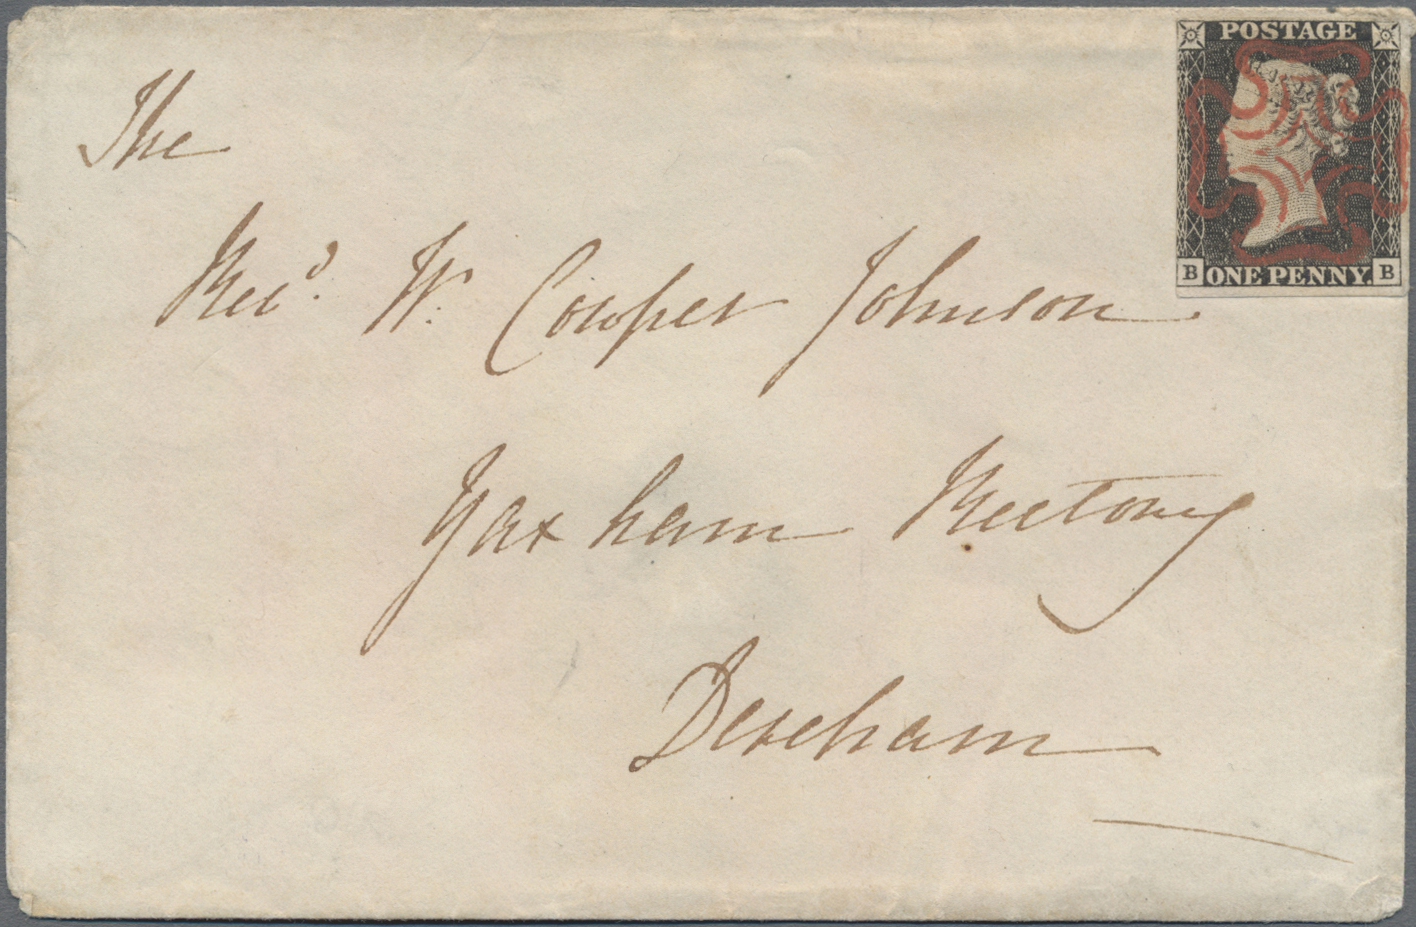 POSTAGE
B ONE PENNY. B
The
Revd. W. Cowper Johnson
Yaxham Rectory
Dereham